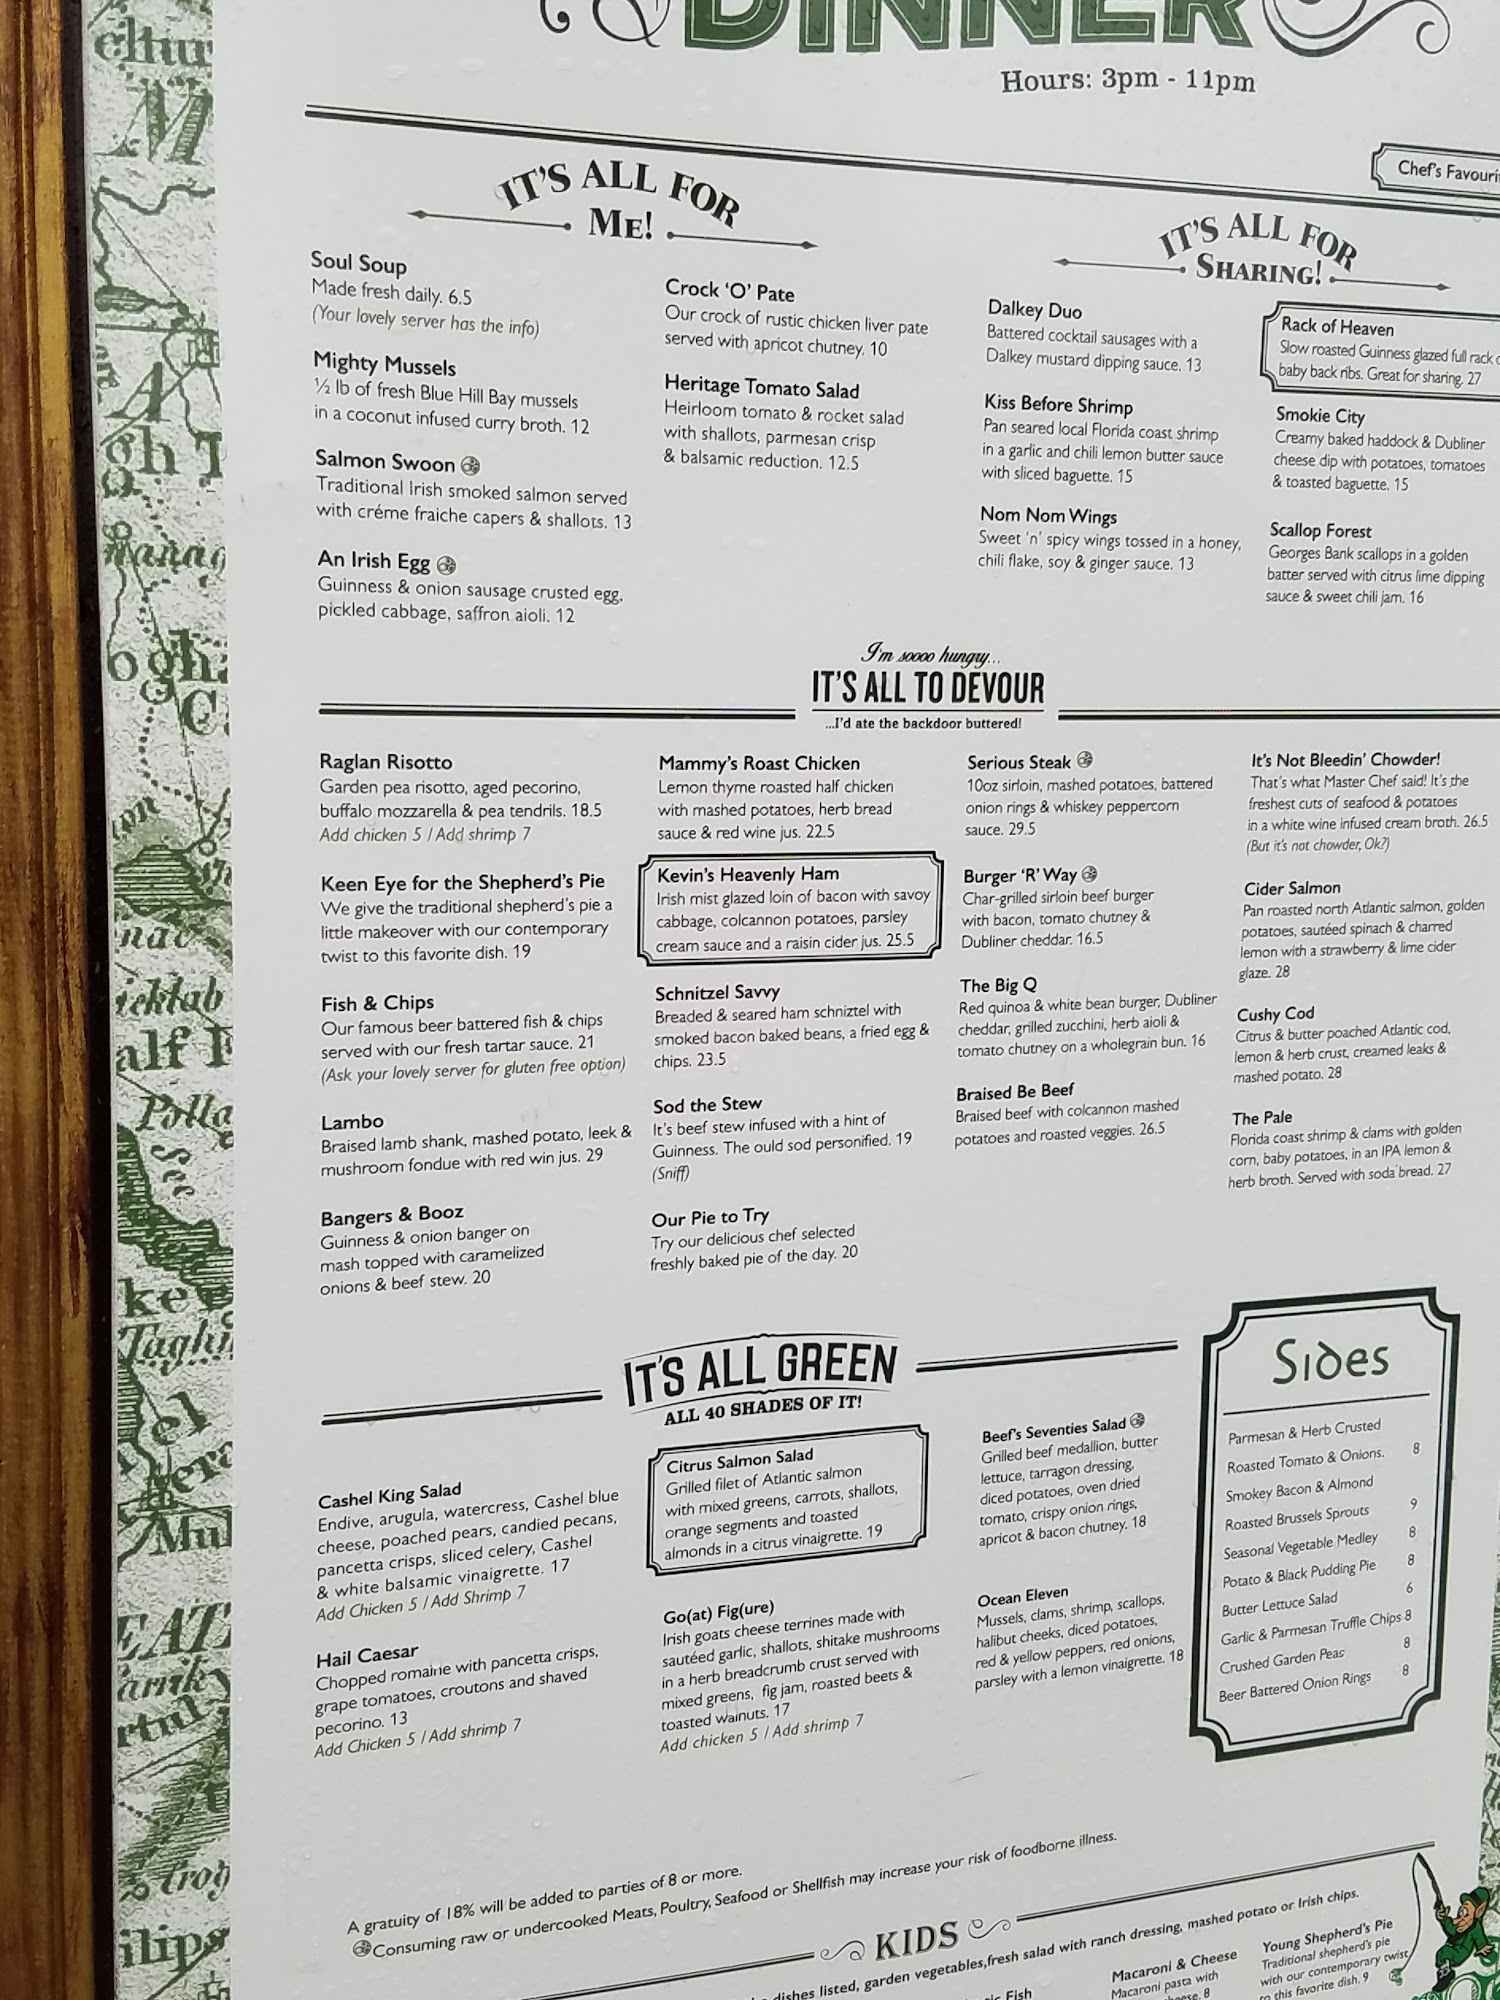 DINNER
Hours: 3pm - 11pm
Chef's
IT'S ALL FOR
ME!
Soul Soup
Made fresh daily. 6.5
(Your lovely server has the info)
Mighty Mussels
½ lb of fresh Blue Hill Bay mussels
in a coconut infused curry broth. 12
Salmon Swoon
Traditional Irish smoked salmon served
with créme fraiche capers & shallots. 13
An Irish Egg
Guinness & onion sausage crusted egg,
pickled cabbage, saffron aioli. 12
Crock 'O' Pate
Our crock of rustic chicken liver pate
served with apricot chutney. 10
Heritage Tomato Salad
Heirloom tomato & rocket salad
with shallots, parmesan crisp
& balsamic reduction. 12.5
IT'S ALL FOR
SHARING!
Dalkey Duo
Battered cocktail sausages with a
Dalkey mustard dipping sauce. 13
Kiss Before Shrimp
Pan seared local Florida coast shrimp
in a garlic and chili lemon butter sauce
with sliced baguette. 15
Nom Nom Wings
Sweet 'n' spicy wings tossed in a honey,
chili flake, soy & ginger sauce. 13
Rack of Heaven
Slow roasted Guinness glazed full rack
baby back ribs. Great for sharing. 27
Smokie City
Creamy baked haddock & Dubliner
cheese dip with potatoes, tomatoes
& toasted baguette. 15
Scallop Forest
Georges Bank scallops in a golden
batter served with citrus lime dipping
sauce & sweet chili jam. 16
I'm soooo hungry...
IT'S ALL TO DEVOUR
...I'd ate the backdoor buttered!
Raglan Risotto
Garden pea risotto, aged pecorino,
buffalo mozzarella & pea tendrils. 18.5
Add chicken 5 / Add shrimp 7
Keen Eye for the Shepherd's Pie
We give the traditional shepherd's pie a
little makeover with our contemporary
twist to this favorite dish. 19
Fish & Chips
Our famous beer battered fish & chips
served with our fresh tartar sauce. 21
(Ask your lovely server for gluten free option)
Lambo
Braised lamb shank, mashed potato, leek &
mushroom fondue with red win jus. 29
Bangers & Booz
Guinness & onion banger on
mash topped with caramelized
onions & beef stew. 20
Mammy's Roast Chicken
Lemon thyme roasted half chicken
with mashed potatoes, herb bread
sauce & red wine jus. 22.5
Kevin's Heavenly Ham
Irish mist glazed loin of bacon with savoy
cabbage, colcannon potatoes, parsley
cream sauce and a raisin cider jus. 25.5
Schnitzel Savvy
Breaded & seared ham schniztel with
smoked bacon baked beans, a fried egg &
chips. 23.5
Sod the Stew
It's beef stew infused with a hint of
Guinness. The ould sod personified. 19
(Sniff)
Our Pie to Try
Try our delicious chef selected
freshly baked pie of the day. 20
Serious Steak
10oz sirloin, mashed potatoes, battered
onion rings & whiskey peppercorn
sauce. 29.5
Burger 'R' Way
Char-grilled sirloin beef burger
with bacon, tomato chutney &
Dubliner cheddar. 16.5
The Big Q
Red quinoa & white bean burger, Dubliner
cheddar, grilled zucchini, herb aioli &
tomato chutney on a wholegrain bun. 16
Braised Be Beef
Braised beef with colcannon mashed
potatoes and roasted veggies. 26.5
It's Not Bleedin' Chowder!
That's what Master Chef said! It's the
freshest cuts of seafood & potatoes
in a white wine infused cream broth. 26.5
(But it's not chowder, Ok?)
Cider Salmon
Pan roasted north Atlantic salmon, golden
potatoes, sautéed spinach & charred
lemon with a strawberry & lime cider
glaze. 28
Cushy Cod
Citrus & butter poached Atlantic cod,
lemon & herb crust, creamed leaks &
mashed potato. 28
The Pale
Florida coast shrimp & clams with golden
corn, baby potatoes, in an IPA lemon &
herb broth. Served with soda bread. 27
IT'S ALL GREEN
ALL 40 SHADES OF IT!
Cashel King Salad
Endive, arugula, watercress, Cashel blue
cheese, poached pears, candied pecans,
pancetta crisps, sliced celery, Cashel
& white balsamic vinaigrette. 17
Add Chicken 5 / Add Shrimp 7
Hail Caesar
Chopped romaine with pancetta crisps,
grape tomatoes, croutons and shaved
pecorino. 13
Add Chicken 5 / Add shrimp 7
Citrus Salmon Salad
Grilled filet of Atlantic salmon
with mixed greens, carrots, shallots,
orange segments and toasted
almonds in a citrus vinaigrette. 19
Go(at) Fig(ure)
Irish goats cheese terrines made with
sautéed garlic, shallots, shitake mushrooms
in a herb breadcrumb crust served with
mixed greens, fig jam, roasted beets &
toasted walnuts. 17
Add chicken 5 / Add shrimp 7
Beef's Seventies Salad
Grilled beef medallion, butter
lettuce, tarragon dressing,
diced potatoes, oven dried
tomato, crispy onion rings,
apricot & bacon chutney. 18
Ocean Eleven
Mussels, clams, shrimp, scallops,
halibut cheeks, diced potatoes,
red & yellow peppers, red onions,
parsley with a lemon vinaigrette. 18
Sides
Parmesan & Herb Crusted
Roasted Tomato & Onions. 8
Smokey Bacon & Almond
Roasted Brussels Sprouts 9
Seasonal Vegetable Medley 8
Potato & Black Pudding Pie 8
Butter Lettuce Salad 6
Garlic & Parmesan Truffle Chips 8
Crushed Garden Peas 8
Beer Battered Onion Rings 8
A gratuity of 18% will be added to parties of 8 or more.
Consuming raw or undercooked Meats, Poultry, Seafood or Shellfish may increase your risk of foodborne illness.
KIDS
dishes listed, garden vegetables,fresh salad with ranch dressing, mashed potato or Irish chips.
Fish
Macaroni & Cheese
Macaroni pasta with
8
Young Shepherd's Pie
Traditional shepherd's pie
with our contemporary twist
this favorite dish. 9